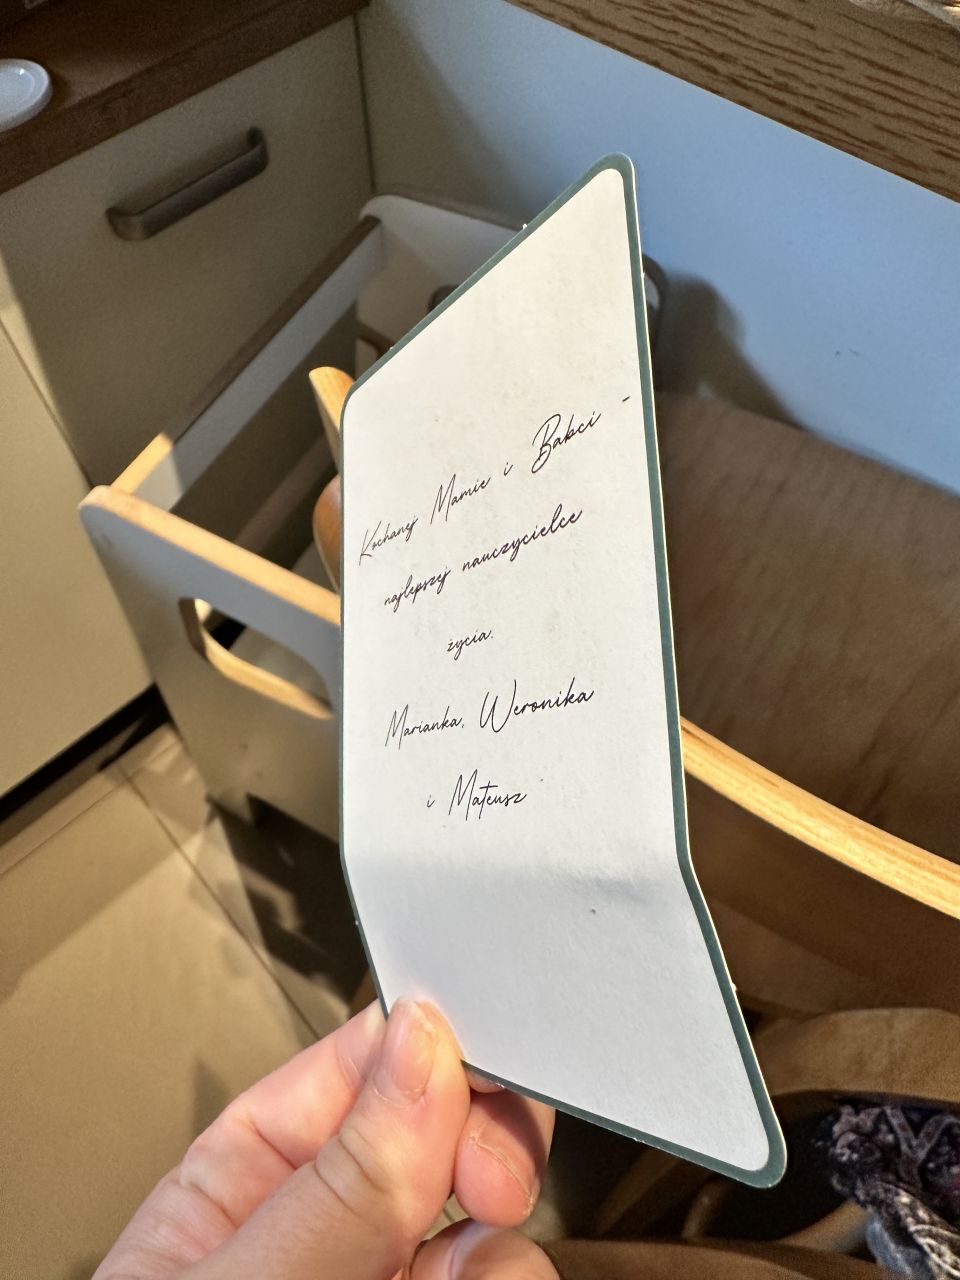 Kochanej Mamie i Babci -
najlepszej nauczycielce
życia.
Marianka, Weronika
i Mateusz